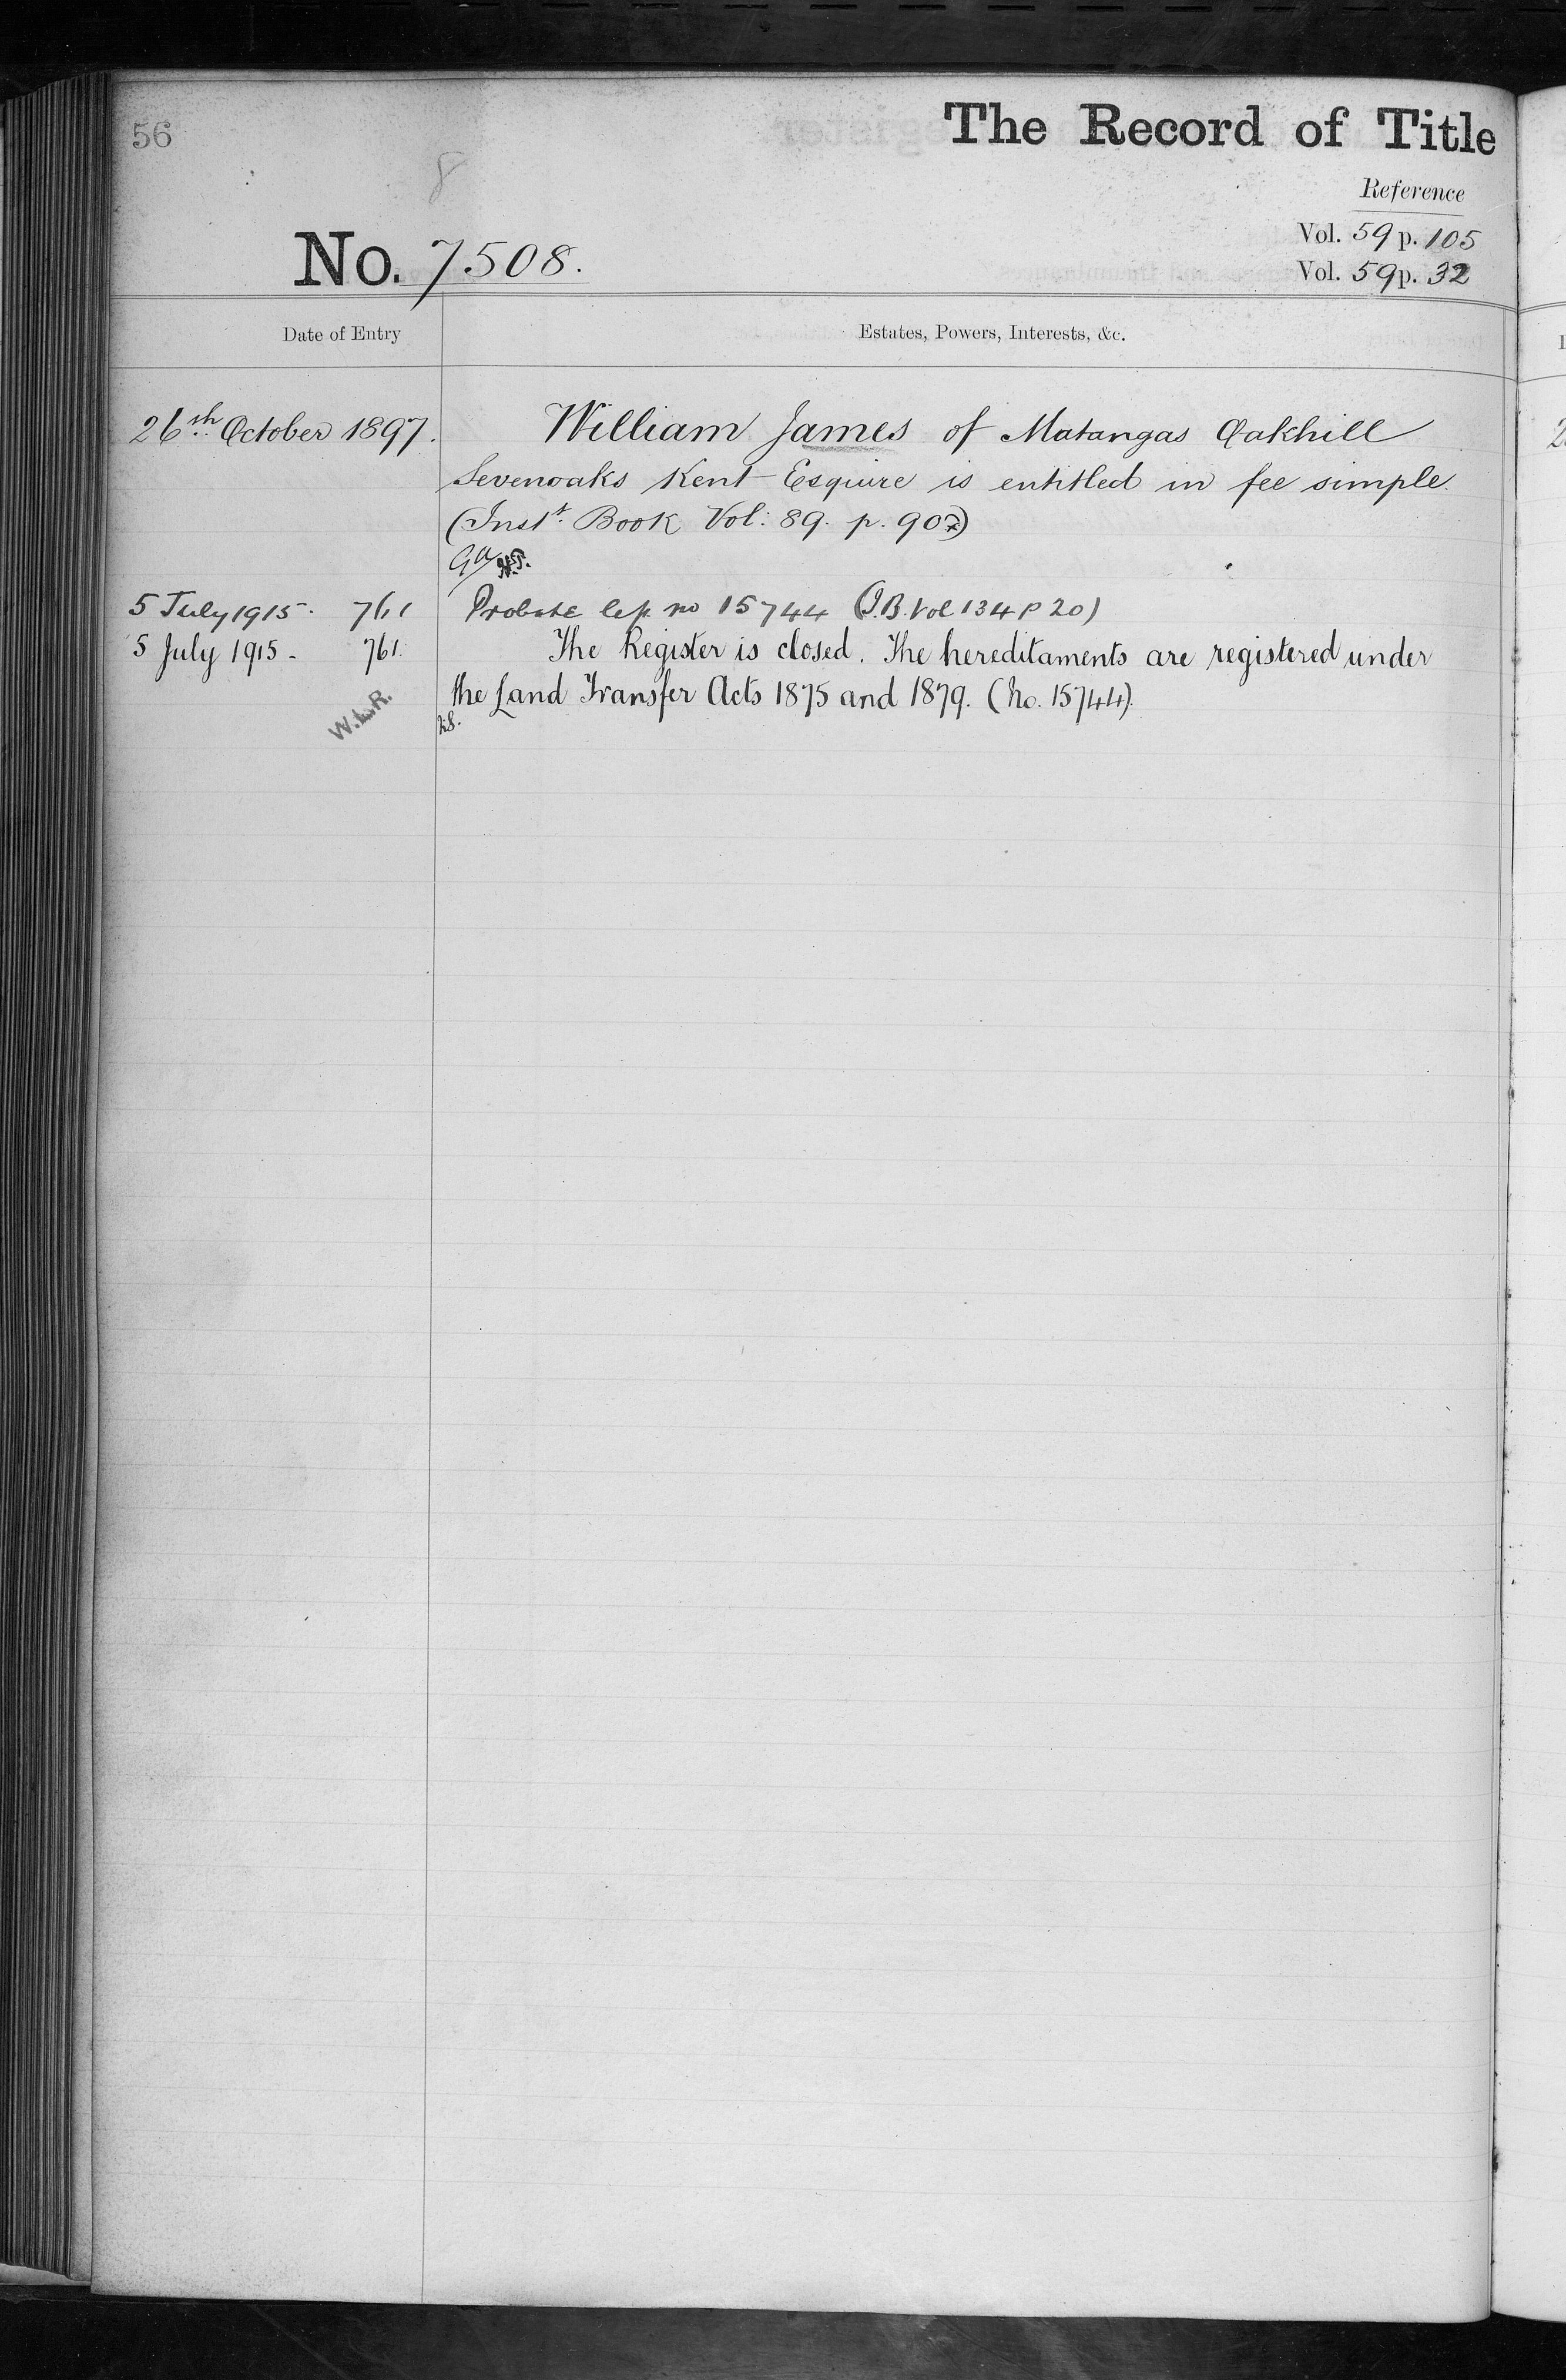 56
The Record of Title
8
Reference
Vol. 59 p. 105
No. 7508.
Vol. 59 p. 32
Date of Entry
Estates, Powers, Interests, &c.
26th October 1897. William James of Matangas Oakhill
Sevenoaks Kent Esquire is entitled in fee simple.
(Inst. Book Vol: 89. p. 907)
5 July 1915. 761 Probate no 15744 (I.B. Vol 134 P 20)
5 July 1915 - 761. The Register is closed. The hereditaments are registered under
the Land Transfer Acts 1875 and 1879. (No. 15744).
W.L.R.